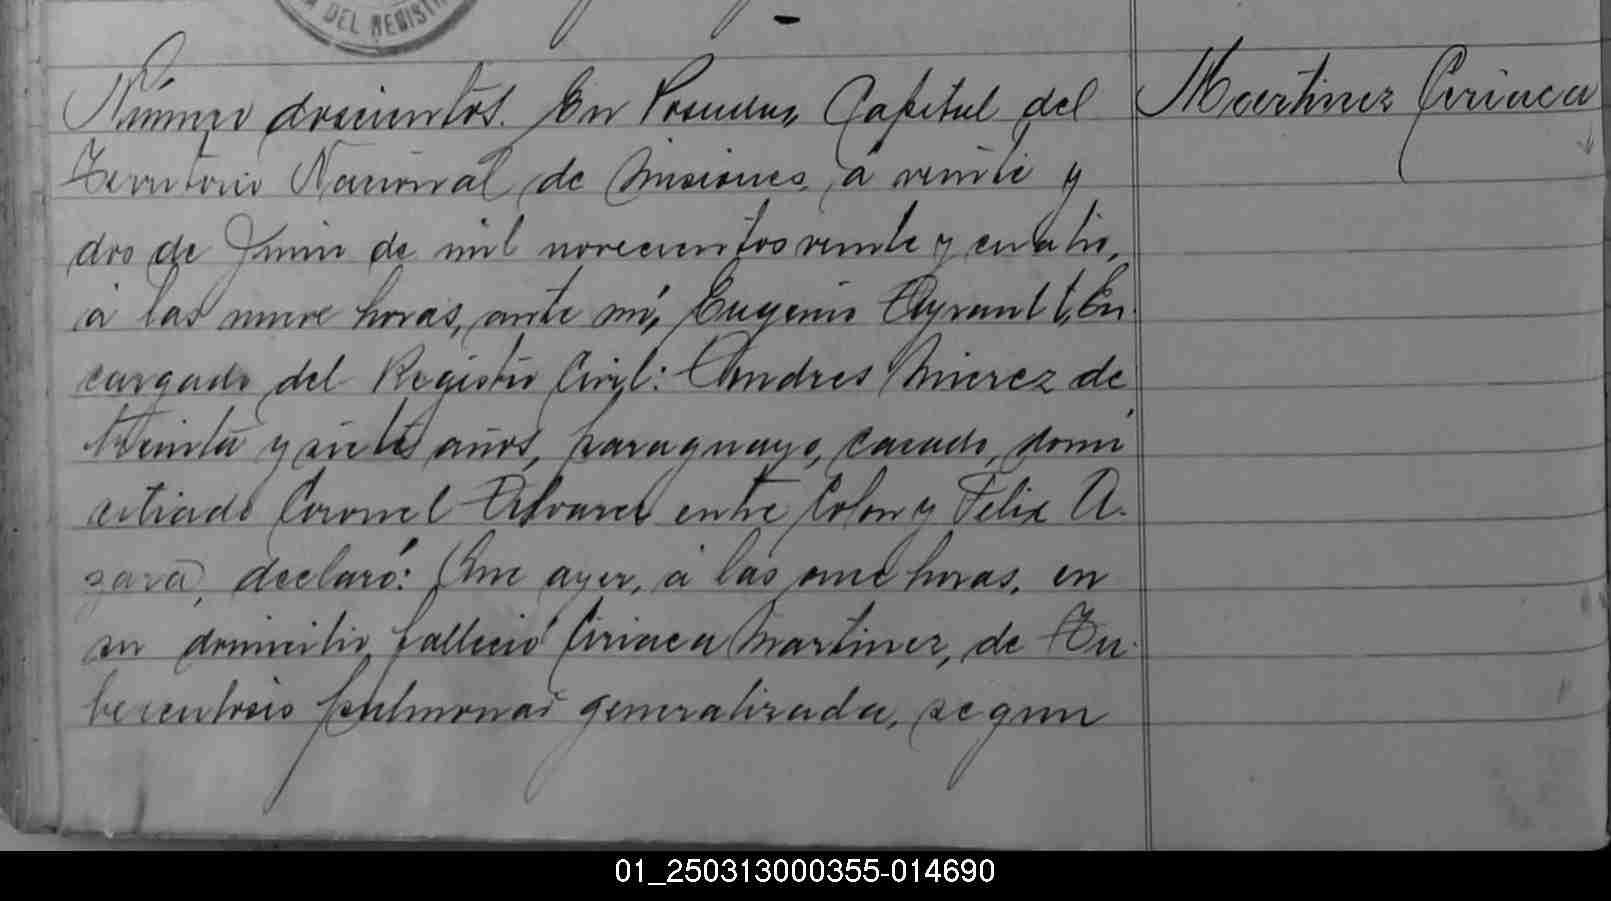 DEL REGISTR
Número doscientos. En Posadas, Capital del
Martinez Ciriaca
Territorio Nacional de Misiones, á veinte y
dos de Junio de mil novecientos veinte y cuatro,
á las nueve horas, ante mí, Eugenio Ayrault, En-
cargado del Registro Civil: Andres Mierez de
treinta y siete años, paraguayo, casado, domi
ciliado Coronel Alvarez entre Colon y Felix A-
zara, declaró: Que ayer, á las once horas, en
su domicilio falleció Ciriaca Martinez, de Tu-
berculosis pulmonar generalizada, segun
01_250313000355-014690